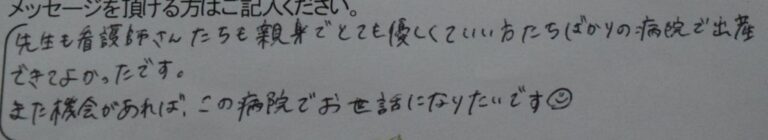 メッセージを頂ける方はご記入ください。
先生も看護師さんたちも親身でとても優しくていい方たちばかりの病院で出産
できてよかったです。
また機会があれば、この病院でお世話になりたいです☺